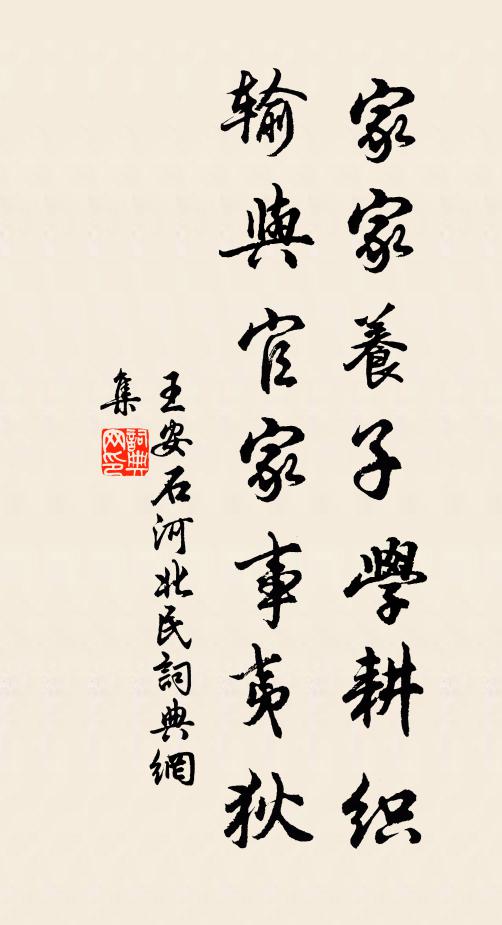 家家養子學耕织
输與官家事夷狄
王安石河北民詞典網
集
詞典网印